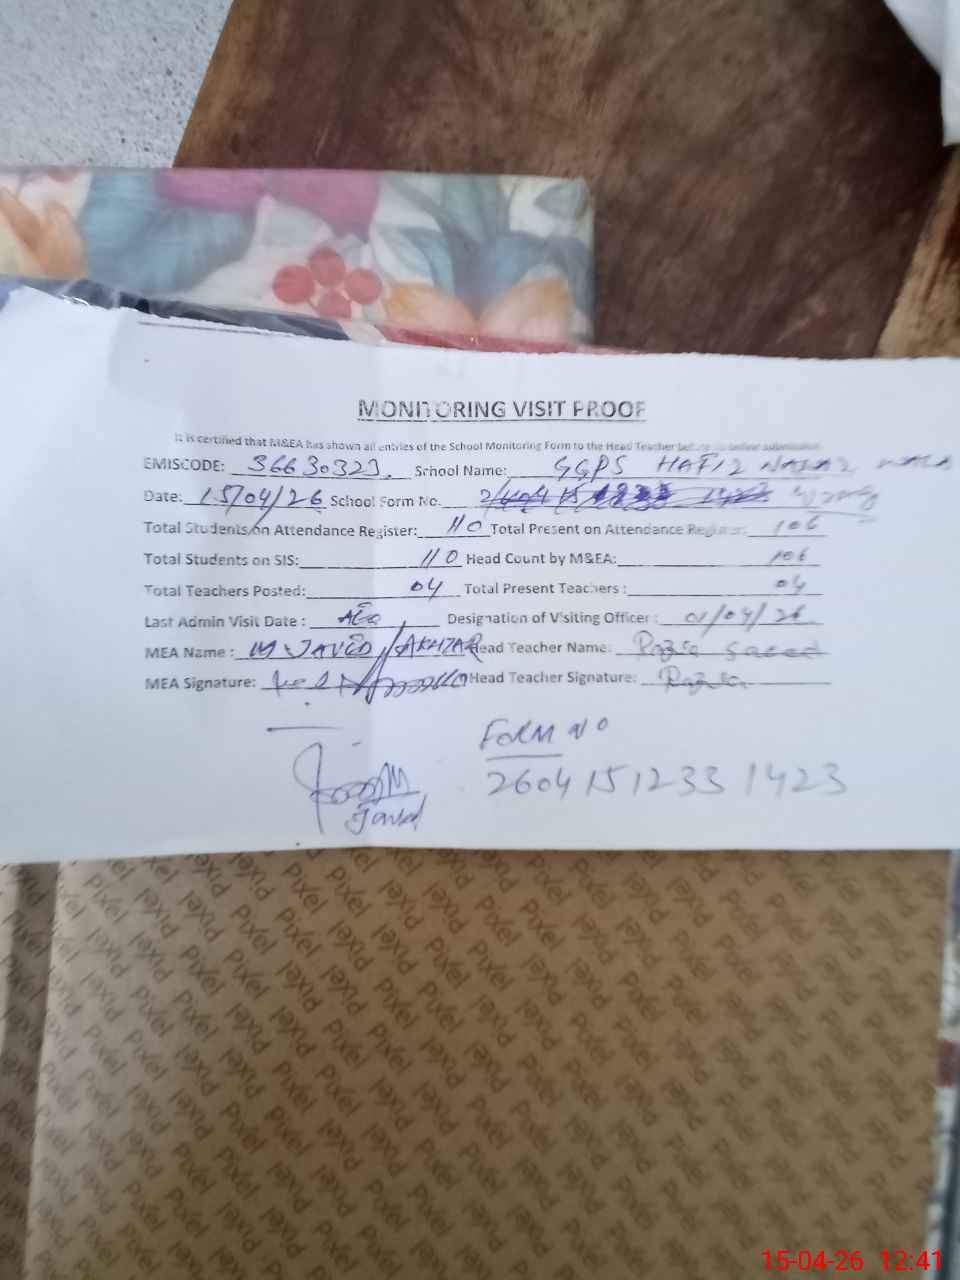 MONITORING VISIT PROOF
It is certified that M&EA has shown all entries of the School Monitoring Form to the Head Teacher before online submission.
EMISCODE: 36630323. School Name: GGPS HAFIZ
Date: 15/04/26 School Form No. wrong
Total Students on Attendance Register: 110 Total Present on Attendance Register: 106
Total Students on SIS: 110 Head Count by M&EA: 106
Total Teachers Posted: 04 Total Present Teachers : 04
Last Admin Visit Date : AEO Designation of Visiting Officer : 01/04/26
MEA Name : M JAVED AKHTAR Head Teacher Name: Saeed
MEA Signature: Head Teacher Signature:
FORM NO
2604151233 1423
Javed
Pixel
15-04-26 12:41